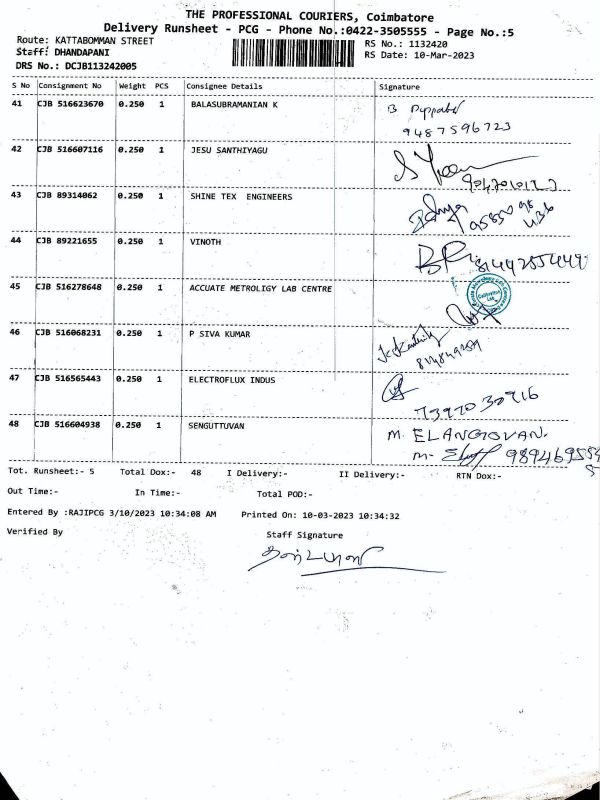 THE PROFESSIONAL COURIERS, Coimbatore
Delivery Runsheet - PCG - Phone No.:0422-3505555 - Page No.:5
Route: KATTABOMMAN STREET
RS No.: 1132420
Staff: DHANDAPANI
RS Date: 10-Mar-2023
DRS No.: DCJB113242005
S No Consignment No Weight PCS Consignee Details Signature
41 CJB 516623670 0.250 1 BALASUBRAMANIAN K B
9487596723
42 CJB 516607116 0.250 1 JESU SANTHIYAGU
43 CJB 89314062 0.250 1 SHINE TEX ENGINEERS
44 CJB 89221655 0.250 1 VINOTH
45 CJB 516278648 0.250 1 ACCUATE METROLIGY LAB CENTRE
46 CJB 516068231 0.250 1 P SIVA KUMAR
47 CJB 516565443 0.250 1 ELECTROFLUX INDUS
48 CJB 516604938 0.250 1 SENGUTTUVAN M. ELANGOVAN.
Tot. Runsheet:- 5 Total Dox:- 48 I Delivery:- II Delivery:- RTN Dox:-
Out Time:- In Time:- Total POD:-
Entered By :RAJIPCG 3/10/2023 10:34:08 AM Printed On: 10-03-2023 10:34:32
Verified By Staff Signature